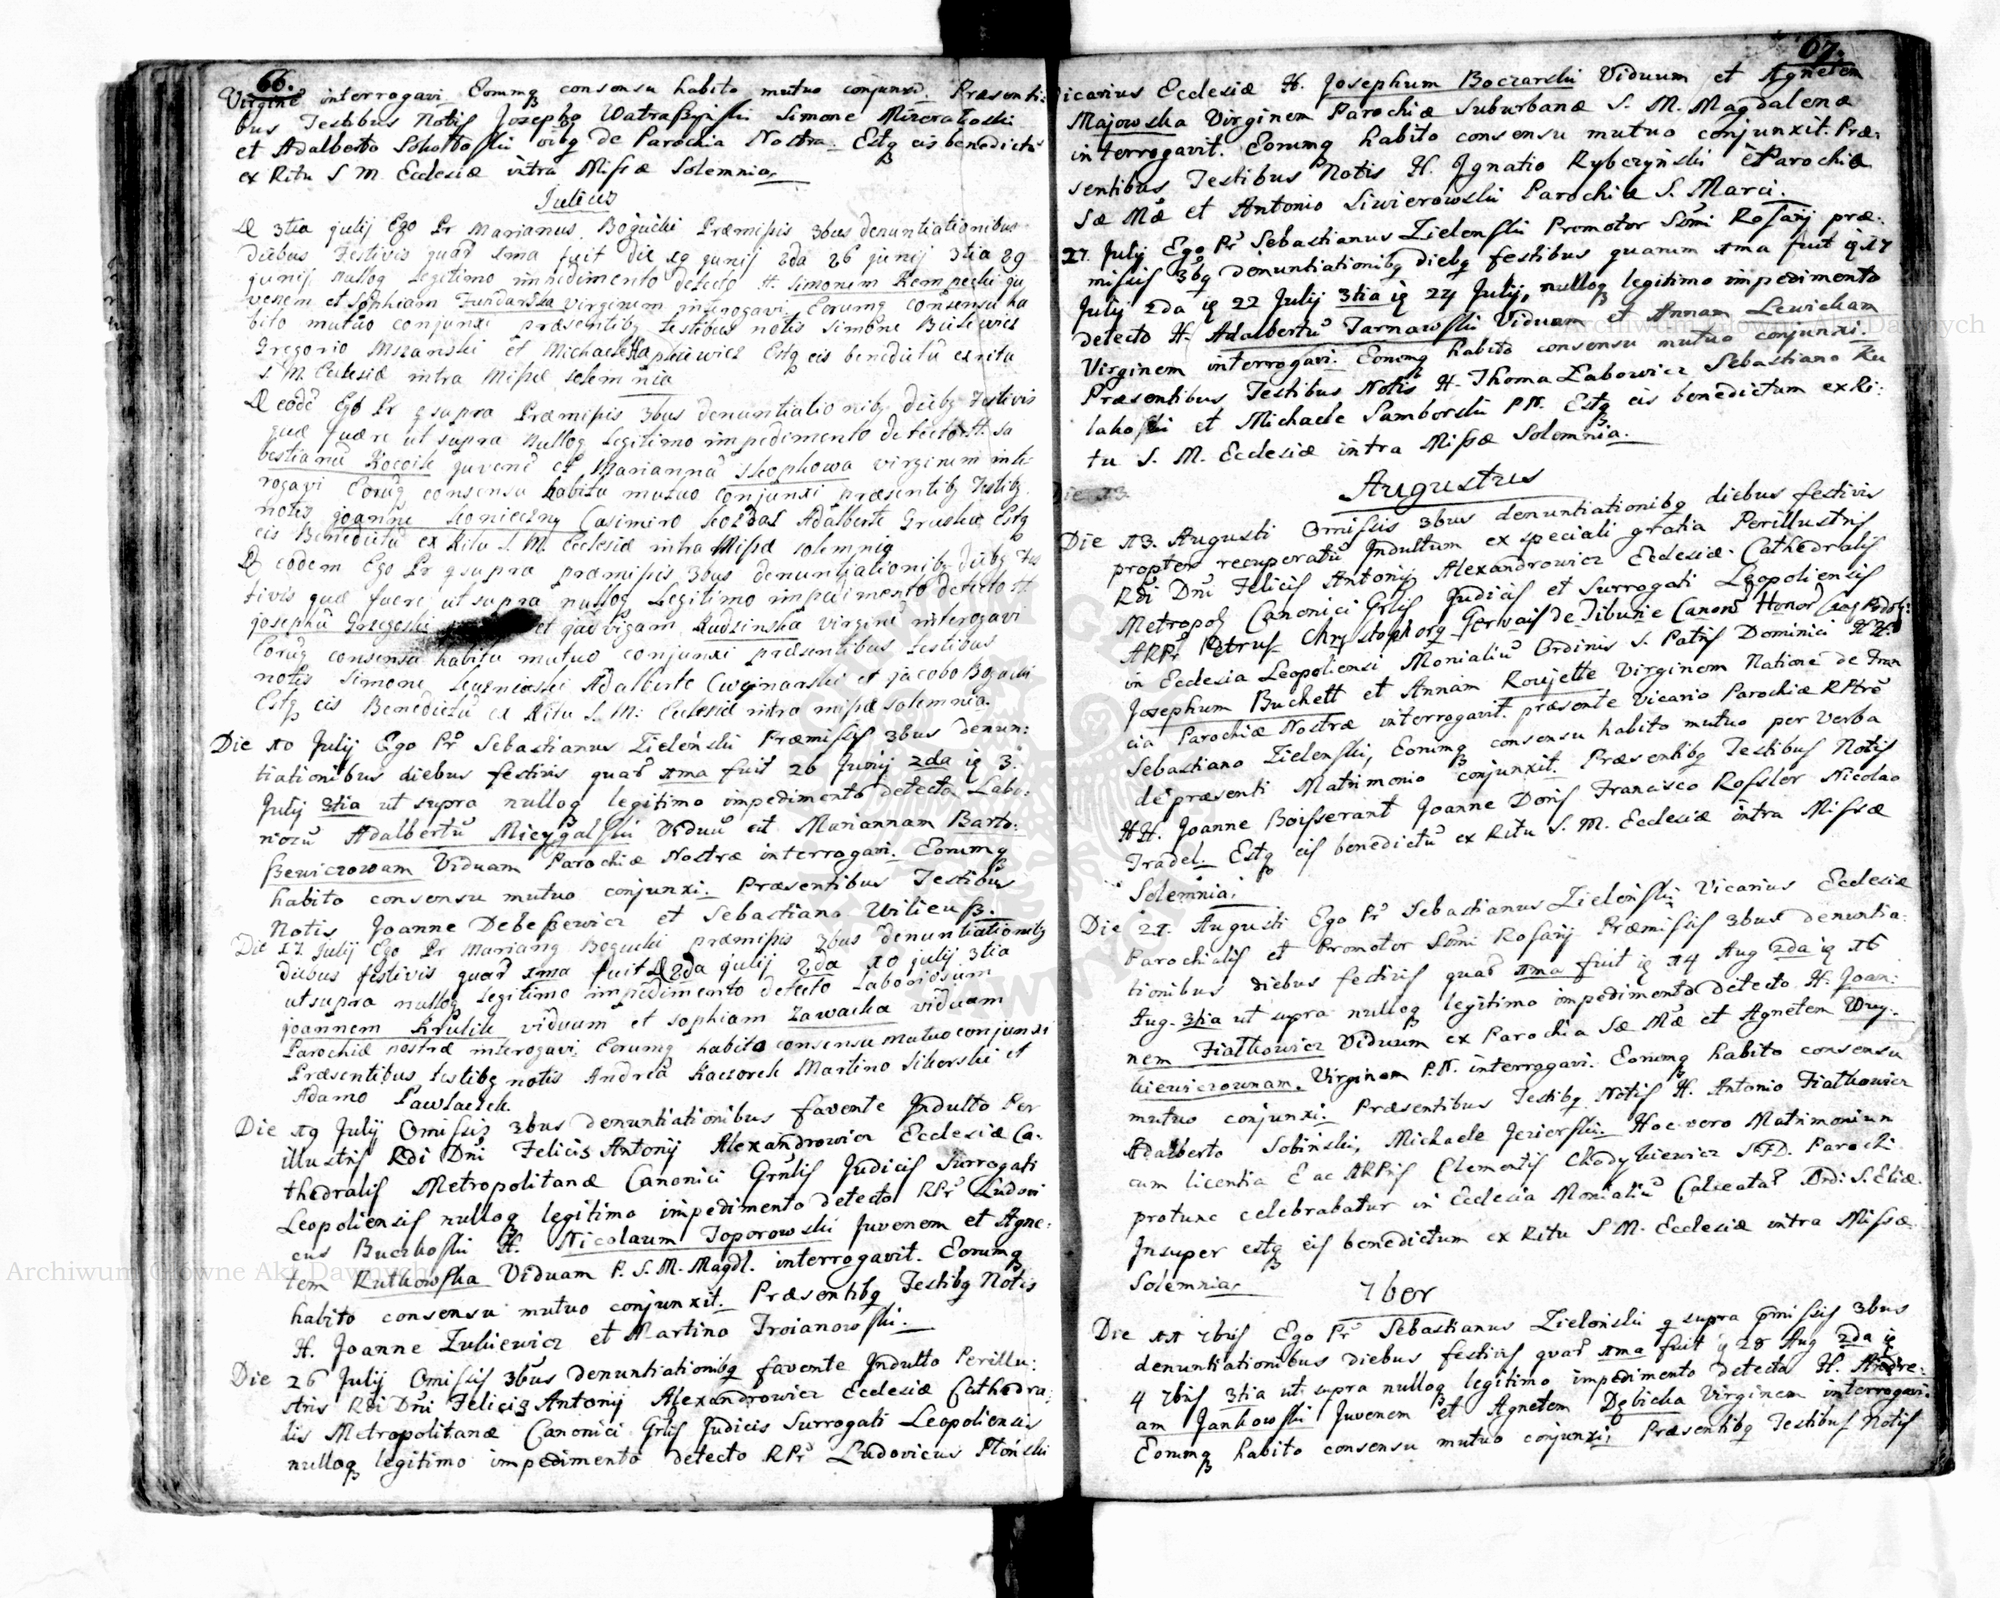 66.
Virginē interrogavi Eorumq consensu habito mutuo conjunxi. Præsenti:
bus Testibus Notis Josepho Simone
et Adalberto oībq de Parochia Nostra. Estq eis benedictū
ex Ritu S. M. Ecclesiæ intra Missæ Solemnia.
Julius
D 3tia julij Ego Pr Marianus Bogucki Præmissis 3bus denuntiationibus
diebus Festivis quar 1ma fuit die 19 junij 2da 26 junij 3tia 29
junij nulloq legitimo impedimento detecto H. Simonem Kempecki ju
venem et Sophiam Fundarska virginem interogavi Eorumq consensu ha
bito mutuo conjunxi præsentibq testibus notis Simone
Gregorio et Michaele Estq eis benedictū ex ritu
S. M. Eclesiæ intra Missæ solemnia
D eodē Ego Pr qsupra Præmissis 3bus denuntiationibq diebq Festivis
quæ fuere ut supra Nulloq legitimo impedimento detecto H. Se
bestianū juvenē et Mariannā virginem inte
rogavi Eorūq consensu habitu mutuo conjunxi præsentibq Testibq
notis joanne Konieczny Casimiro Adalberto Estq
eis Benedictū ex Ritu S. M. Eclesiæ intra Missæ solemnia
D eodem Ego Pr qsupra præmissis 3bus denuntiationibq diebq Fes
tivis quæ fuere ut supra nulloq legitimo impedimento detecto H.
josephū Grzegeski et jadvigam Rudzinska virginē interogavi
Eorūq consensu habitu mutuo conjunxi præsentibus testibus
notis Simone Adalberto et jacobo Bogacki
Estq eis Benedictū ex Ritu S. M: Eclesiæ intra missæ solemnia.
Die 10 Julij Ego Pr Sebastianus Zieleński Præmissis 3bus denun:
tiationibus diebus festivis quar 1ma fuit 26 Junij 2da iq 3.
Julij 3tia ut supra nulloq legitimo impedimento detecto Labo:
riozū Adalbertū Viduū et Mariannam Barto:
szewiczowam Viduam Parochiæ Nostræ interrogavi. Eorumq
habito consensu mutuo conjunxi. Præsentibus Testibus
Notis Joanne Debeszewicz et Sebastiano
Die 17 Julij Ego Pr Marianq Bogucki præmissis 3bus denuntiationibq
diebus festivis quar 1ma fuit julij 2da 10 julij 3tia
ut supra nulloq legitimo impedimento detecto Laboriosum
joannem Krulik viduum et sophiam Zawacka viduam
Parochiæ nostræ interogavi, Eorumq habito consensu mutuo conjunxi
Præsentibus testibq notis Andrea Kaczorek Martino Sikorski et
Adamo Pawlaczek
Die 19 Julij Omissis 3bus denuntiationibus favente Indulto Per
illustris Rdi Dni Felicis Antonij Alexandrowicz Ecclesiæ Ca-
thedralis Metropolitanæ Canonici Grnlis Judicis Surrogati
Leopoliensis nulloq legitimo impedimento detecto RPr Ludovi
cus Buczkoski H. Nicolaum Toporowski Juvenem et Agne:
tem Rutkowska Viduam P. S. M. Magdl. interrogavit. Eorumq
habito consensu mutuo conjunxit. Præsentibq Testibq Notis
H. Joanne Zukiewicz et Martino Troianowski.
Die 26 Julij Omissis 3bus denuntiationibq favente Indulto Perillu:
stris Rdi Dni Felicis Antonij Alexandrowicz Ecclesiæ Cathedra:
lis Metropolitanæ Canonici Grlis Judicis Surrogati Leopoliensis
nulloq legitimo impedimento detecto RPr Ludovicus Płoński
67.
Vicarius Ecclesiæ H. Josephum Boczarski Viduum et Agnetem
Majowska Virginem Parochiæ Suburbanæ S. M. Magdalenæ
interrogavit. Eorumq habito consensu mutuo conjunxit. Præ:
sentibus Testibus Notis H. Ignatio Rybczyński è Parochia
Sæ Mæ et Antonio Siwierowski Parochiæ S. Marci.
27. July Ego Pr Sebastianus Zielenski Promotor Smi Rosarij præ:
missis 3bq denuntiationibq diebq festibus quarum 1ma fuit iq 17
July 2da iq 22 Julij 3tia iq 24 Julij, nulloq legitimo impedimento
detecto H. Adalbertū Tarnawski Viduum et Annam Lewickam
Virginem interrogavi. Eorumq habito consensu mutuo conjunxi.
Præsentibus Testibus Notis H. Thoma Łabowicz Sebastiano Ku
lakoski et Michaele Samborski P.N. Estq eis benedictum ex Ri:
tu S. M. Ecclesiæ intra Missæ Solemnia.
Augustus
Die 13.
Die 13. Augusti Omissis 3bus denuntiationibq diebus festivis
propter recuperatū Indultum ex speciali gratia Perillustris
Rdi Dni Felicis Antonij Alexandrowicz Ecclesiæ Cathedralis
Metropol Canonici Grlis Judicis et Surrogati Leopoliensis
ARPr Petrus Chrystophorq Gervais de Tiburie Canonr Honor
in Ecclesia Leopoliensi Monialiū Ordinis S. Patris Dominici HH.
Josephum Buchett et Annam Roujette Virginem Natione de Fran
cia Parochiæ Nostræ interrogavit. præsente Vicario Parochiæ RPtre
Sebastiano Zielenski, Eorumq consensu habito mutuo per Verba
de præsenti Matrimonio conjunxit. Præsentibq Testibus Notis
HH. Joanne Boisserant Joanne Doris Francisco Rossler Nicolao
Tradel. Estq eis benedictū ex Ritu S. M. Ecclesiæ intra Missæ
Solemnia.
Die 21. Augusti Ego Pr Sebastianus Zielonski Vicarius Ecclesiæ
Parochialis et Promotor Smi Rosarij Præmissis 3bus denuntia:
tionibus diebus festivis quar 1ma fuit iq 14 Aug 2da iq 16
Aug. 3tia ut supra nulloq legitimo impedimento detecto H. Joan:
nem Fiałkowicz Viduum ex Parochia Sæ Mæ et Agnetem Woy-
kiewiczownam. Virginem P.N. interrogavi. Eorumq habito consensu
mutuo conjunxi. Præsentibus Testibq Notis H. Antonio Fiałkowicz
Adalberto Sobiński, Michaele Jezierski. Hoc vero Matrimonium
cum licentia E ac ARPris Clementis Chodykiewicz STD. Parochi
protunc celebrabatur in Ecclesia Monialiū Calceatar Ordi: S. Eliæ
Insuper estq eis benedictum ex Ritu S M. Ecclesiæ intra Missæ
Solemnia.
7ber
Die 11 7bris Ego Pr Sebastianus Zieloński q supra Pmissis 3bus
denuntiationibus diebus festivis quar 1ma fuit iq 28 Aug 2da iq
4 7bris 3tia ut supra nulloq legitimo impedimento detecto H. Andre:
am Jankowski Juvenem et Agnetem Dębicka Virginem interrogavi.
Eorumq habito consensu mutuo conjunxi, Præsentibq Testibus Notis
Archiwum Główne Akt Dawnych
Archiwum Główne Akt Dawnych